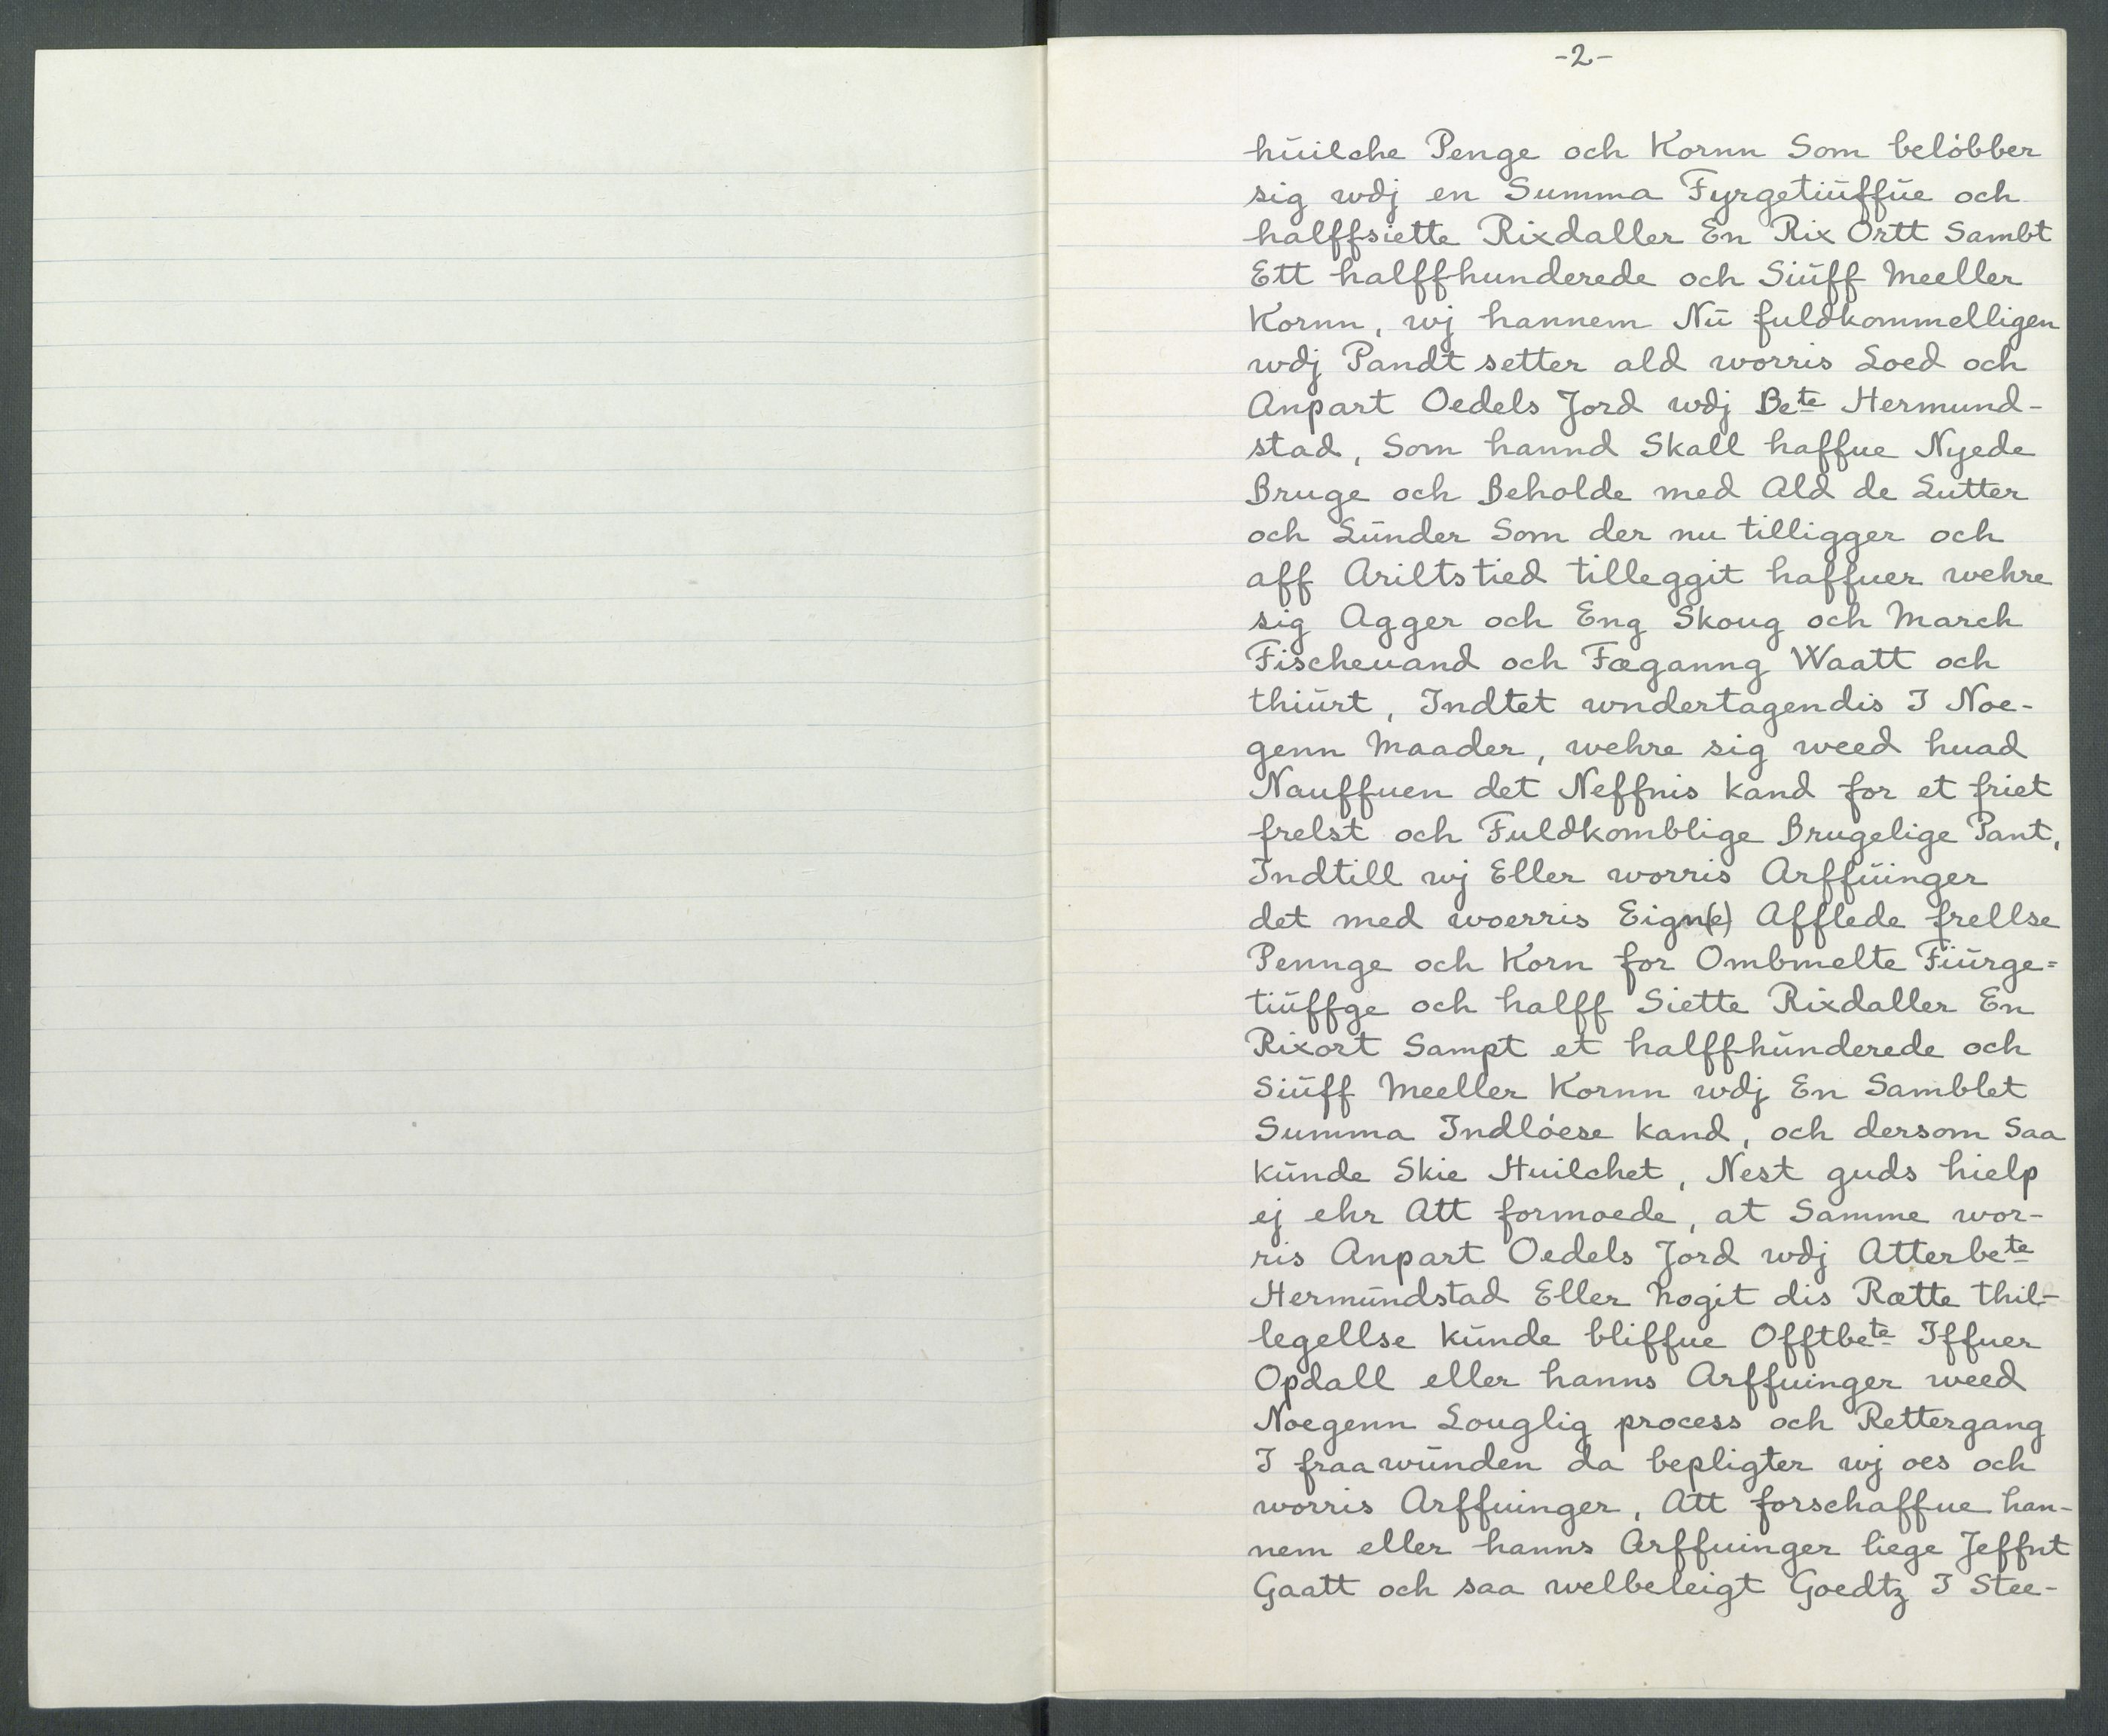 -2-
hūilche Penge och Kornn Som belóbber
sig wdj en Summa Fyrgetiūffūe och
halffsiette Rixdaller En Rix Ortt Sambt
Ett halffhunderede och Siūff Meeller
Kornn, wj hannem Nū fuldkommelligen
wdj Pandt setter ald worris Loed och
Anpart Oedels Jord wdj Bete Hermund-
stad, Som hannd Skall haffue Nyede
Bruge och Beholde med Ald de Lutter
och Lūnder Som der nu tilligger och
aff Ariltstied tilleggit haffuer wehre
sig Agger och Eng Skoug och March
Fischeuand och Fæganng Waatt och
thiūrt, Indtet wndertagendis I Noe-
genn Maader, wehre sig weed huad
Nauffuen det Neffnis kand for et friet
frelst och Fuldkomblige Brugelige Pant,
Indtill wj Eller worris Arffūinger
det med woerris Eign(e) Afflede frellse
Pennge och Korn for Ombmelte Fiūrge=
tiūffge och halff Siette Rixdaller En
Rixort Sampt et halffhūnderede och
Siūff Meeller Kornn wdj En Samblet
Summa Indlóese kand, och dersom Saa
kūnde Skie Huilchet, Nest guds hielp
ej ehr Att formoede, at Samme wor-
ris Anpart Oedels Jord wdj Atterbete
Hermūndstad Eller Nogit dis Rætte thil-
legellse kūnde bliffue Offtbete Iffuer
Opdall eller hanns Arffuinger weed
Noegenn Louglig process och Rettergang
I fraawūnden da bepligter wj oes och
worris Arffuinger, Att forschaffue han-
nem eller hanns Arffuinger liege Jeffnt
Gaatt och saa welbeleigt Goedtz I Stee-